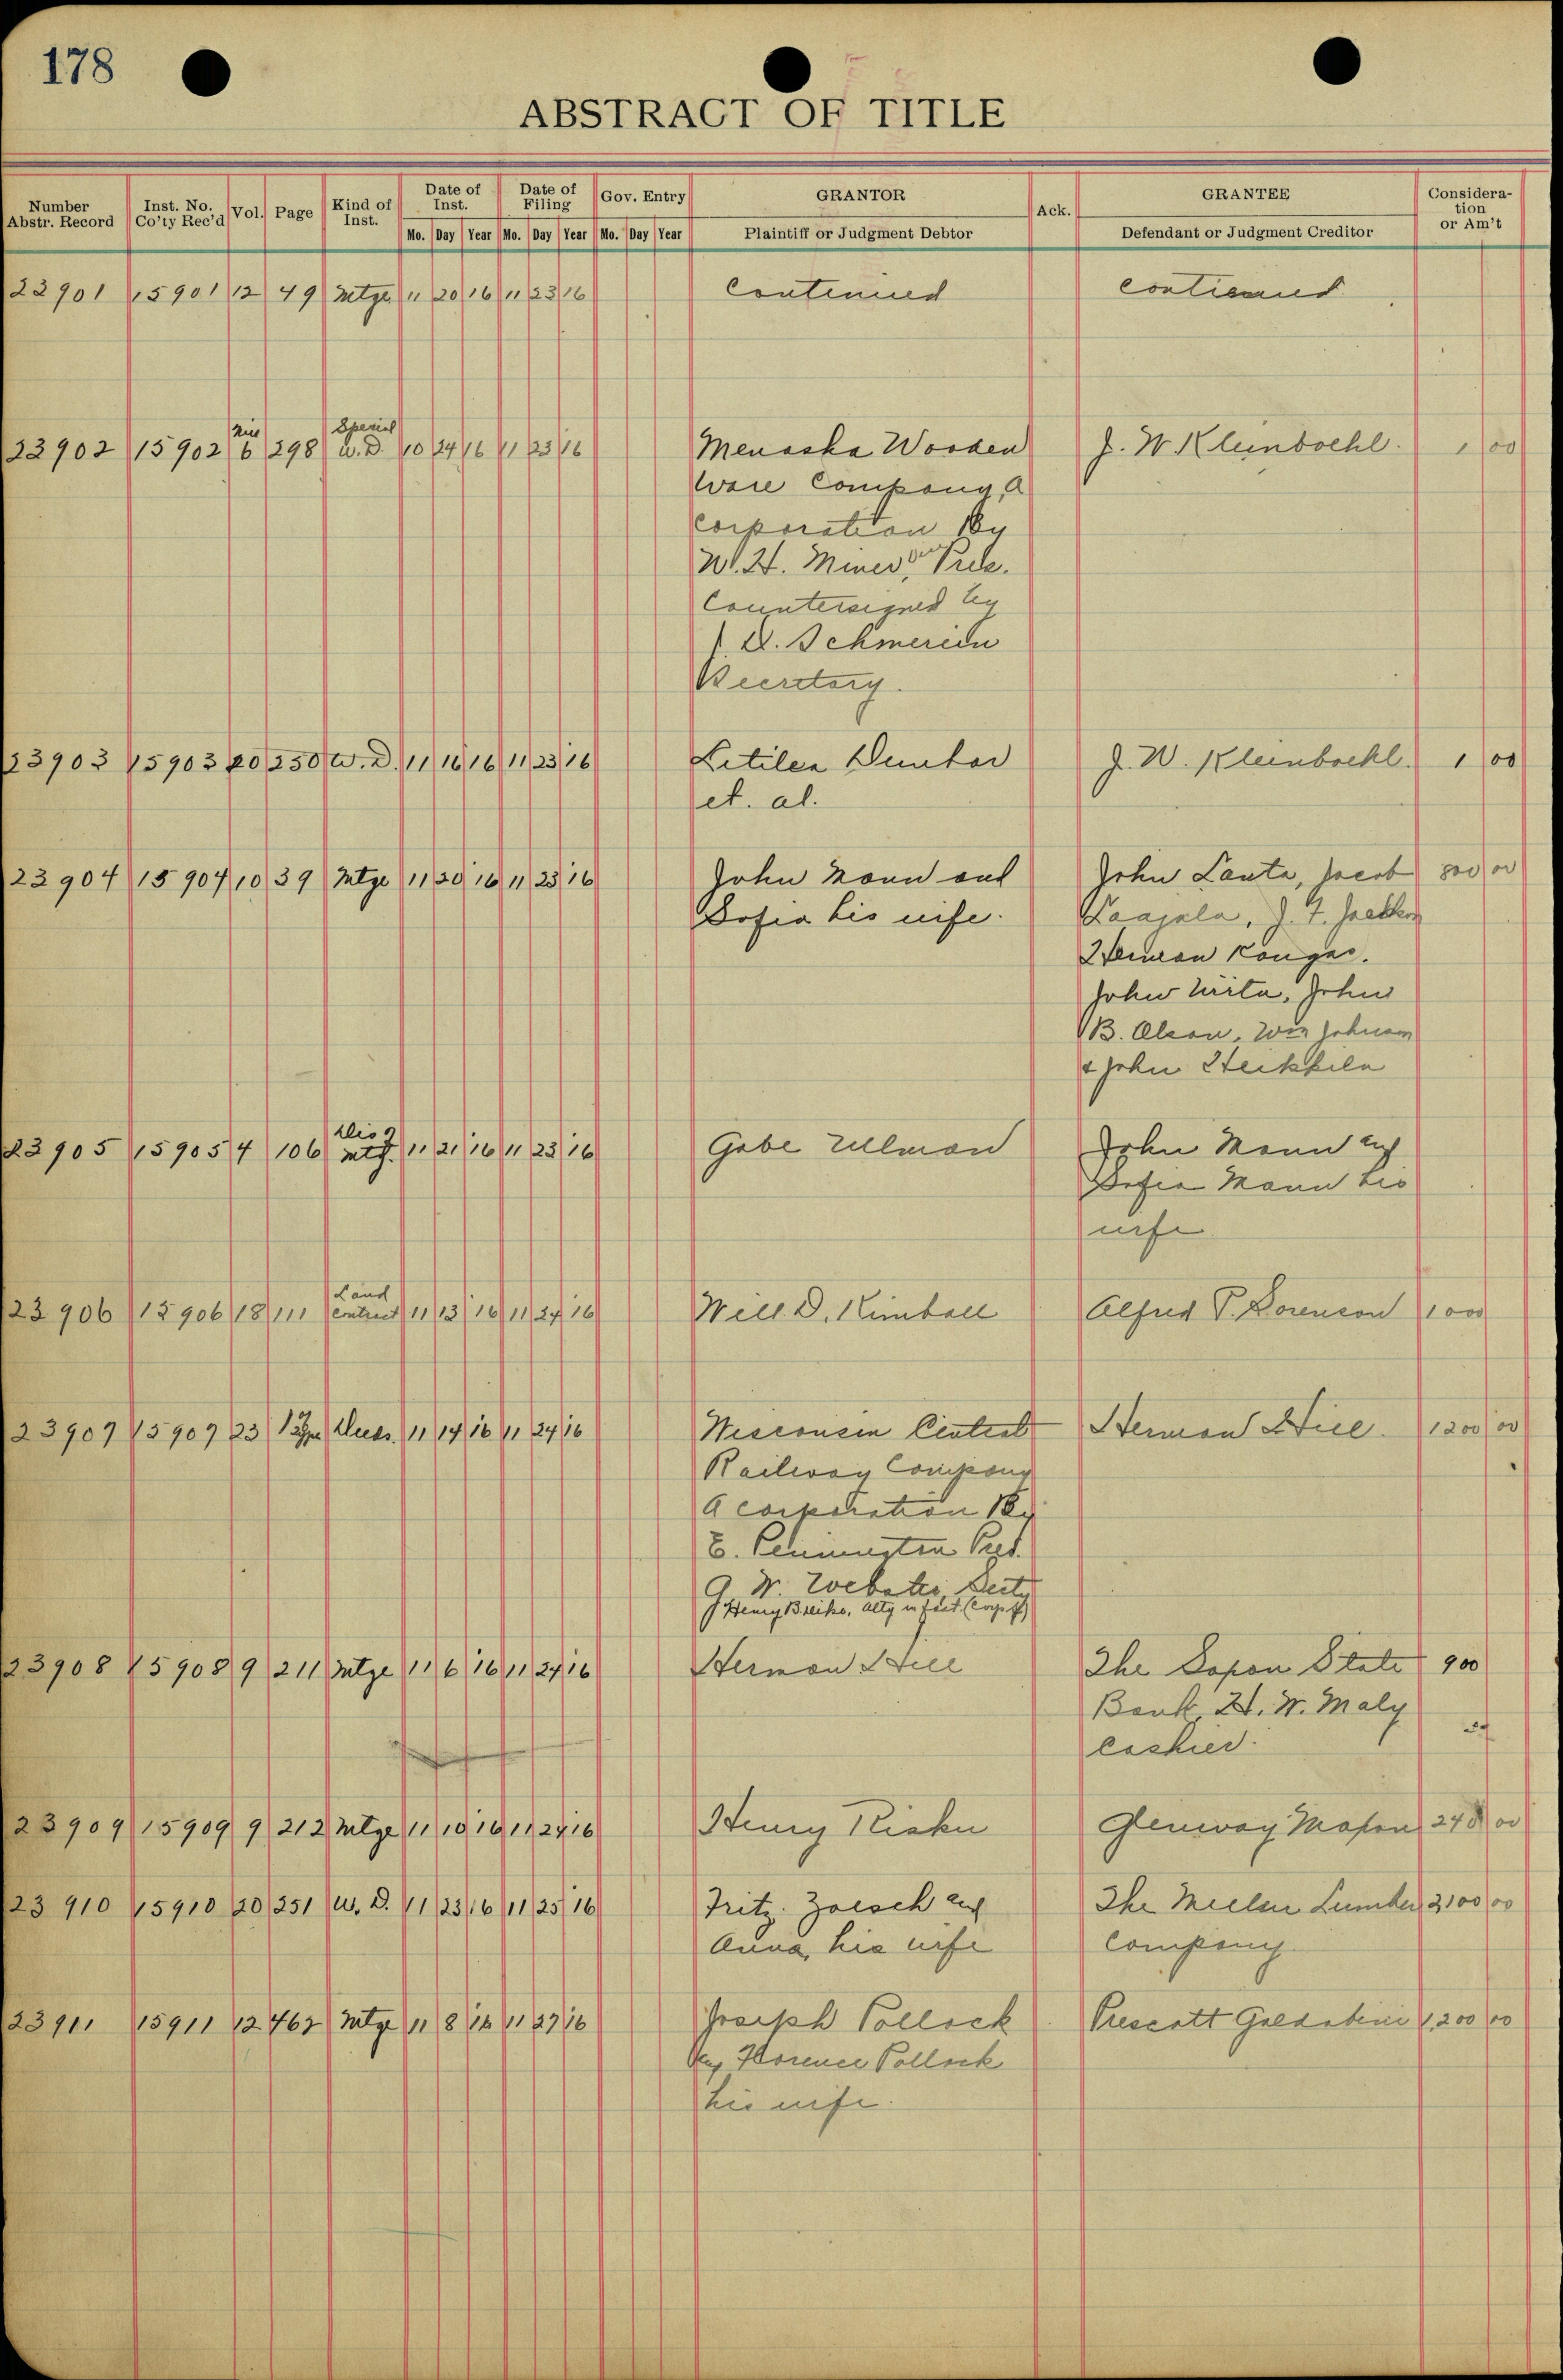 178
ABSTRACT OF TITLE
Number Abstr. Record | Inst. No. Co'ty Rec'd | Vol. | Page | Kind of Inst. | Date of Inst. | Date of Filing | Gov. Entry | GRANTOR | Ack. | GRANTEE | Consideration or Am't
Mo. Day Year | Mo. Day Year | Mo. Day Year | Plaintiff or Judgment Debtor | Defendant or Judgment Creditor
23901 15901 12 49 Mtge 11 20 16 11 23 16 Continued continued
23902 15902 Mis 6 298 Special W.D. 10 24 16 11 23 16 Menasha Wooden J. W. Kleinboehl. 1 00
Ware Company, A
corporation By
W. H. Miner, Pres.
Countersigned by
Secretary.
23903 15903 20 250 W.D. 11 16 16 11 23 16 Dunbar J. W. Kleinboehl. 1 00
et. al.
23904 15904 10 39 Mtge 11 20 16 11 23 16 John Mann and John Lauta, Jacob 800 00
Sofia his wife. Laajala, J. F.
Herman Kangas.
John Wirta, John
B. Olson, Wm Johnson
& John Heikkila
23905 15905 4 106 Dis of mtg. 11 21 16 11 23 16 Gabe Ullman John Mann and
Sofia Mann his
wife
23906 15906 18 111 Land Contract 11 13 16 11 24 16 Will D. Kimball Alfred P. Sorenson 1000
23907 15907 23 Deed. 11 14 16 11 24 16 Wisconsin Central Herman Hill. 1200 00
Railway Company
a corporation By
E. Pennington Pres.
G. W. Webster, Secty
Henry atty in fact. (Corp of)
23908 15908 9 211 Mtge 11 6 16 11 24 16 Herman Hill The State 900
Bank, H. W. Maly
cashier.
23909 15909 9 212 Mtge 11 10 16 11 24 16 Henry Glenway Maxon 248 00
23910 15910 20 251 W.D. 11 23 16 11 25 16 Fritz Zoesch and The Lumber 2,100 00
Anna, his wife Company.
23911 15911 12 462 Mtge 11 8 16 11 27 16 Joseph Pollock Prescott 1,200 00
and Florence Pollock
his wife.